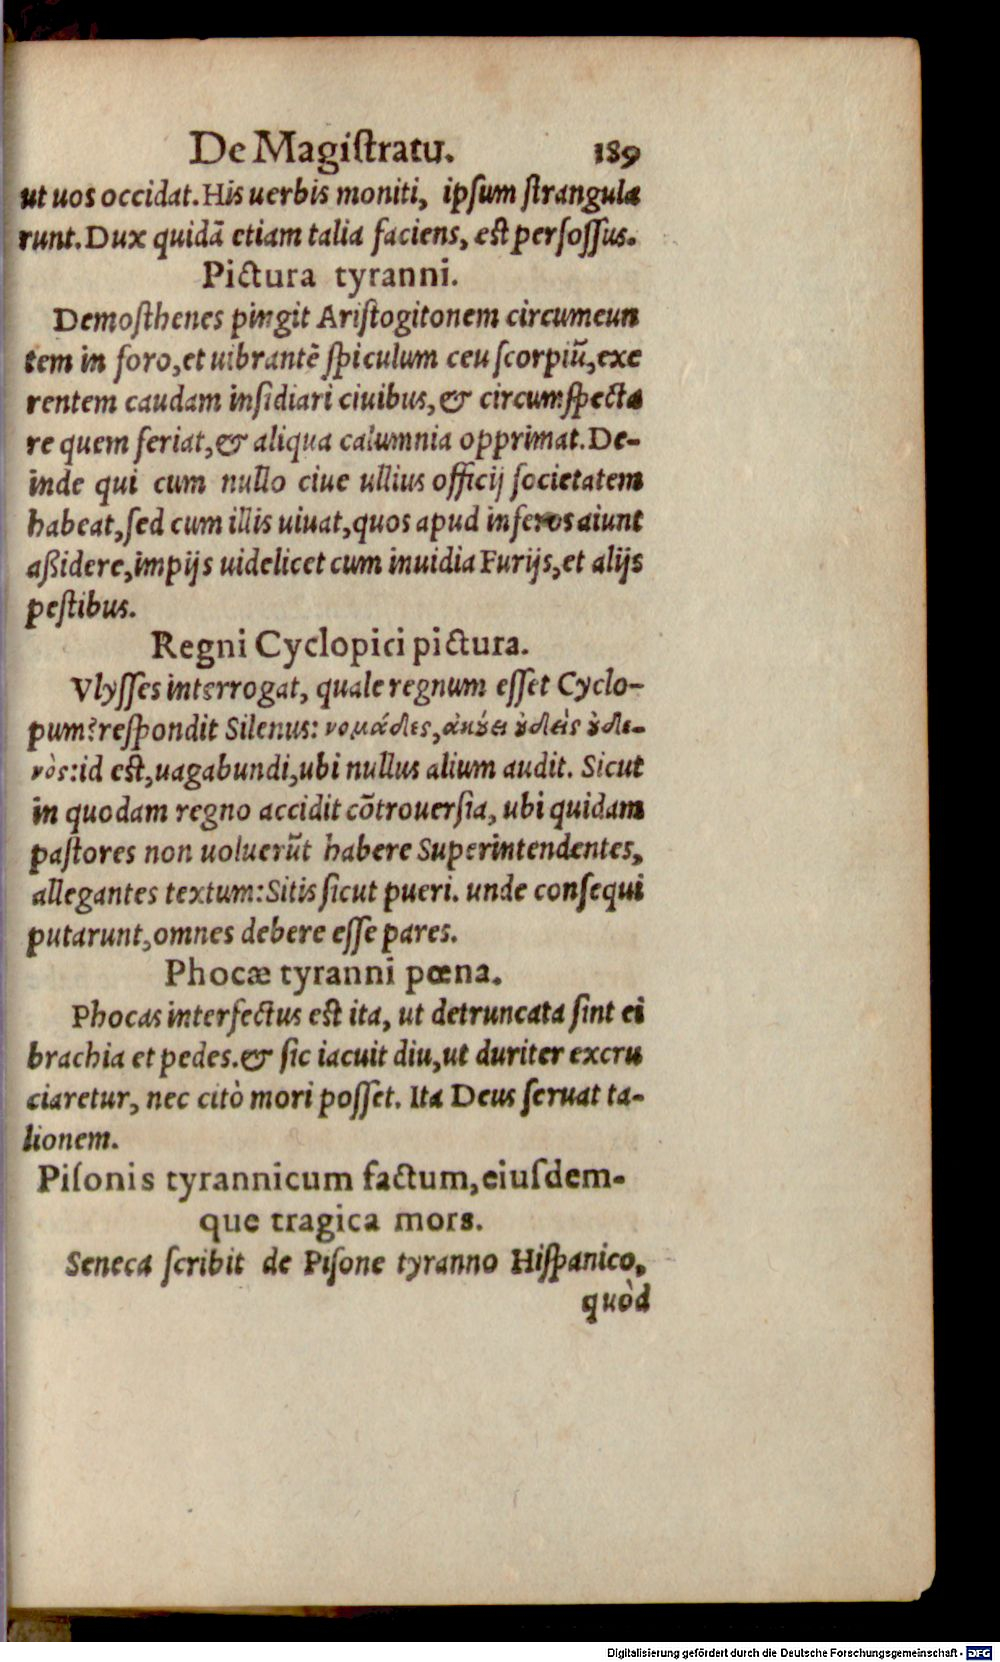 De Magiſtratu. 189
ut uos occidat. His uerbis moniti, ipſum ſtrangula
runt. Dux quidã etiam talia faciens, eſt perfoſſus.
Pictura tyranni.
Demoſthenes pingit Ariſtogitonem circumeun
tem in foro, et uibrantẽ ſpiculum ceu ſcorpiũ, exe
rentem caudam inſidiari ciuibus, & circumſpecta
re quem feriat, & aliqua calumnia opprimat. De-
inde qui cum nullo ciue ullius officij ſocietatem
habeat, ſed cum illis uiuat, quos apud inferos aiunt
aßidere, impijs uidelicet cum inuidia Furijs, et alijs
peſtibus.
Regni Cyclopici pictura.
Vlyſſes interrogat, quale regnum eſſet Cyclo-
pum? reſpondit Silenus: νομάδες, ἀκούει ȣ̓δεὶς ȣ̓δε-
νὸς: id eſt, uagabundi, ubi nullus alium audit. Sicut
in quodam regno accidit cõtrouerſia, ubi quidam
paſtores non uoluerũt habere Superintendentes,
allegantes textum: Sitis ſicut pueri. unde conſequi
putarunt, omnes debere eſſe pares.
Phocæ tyranni pœna.
Phocas interfectus eſt ita, ut detruncata ſint ei
brachia et pedes. & ſic iacuit diu, ut duriter excru
ciaretur, nec citò mori poſſet. Ita Deus ſeruat ta-
lionem.
Piſonis tyrannicum factum, eiuſdem-
que tragica mors.
Seneca ſcribit de Piſone tyranno Hiſpanico,
quòd
Digitalisierung gefördert durch die Deutsche Forschungsgemeinschaft - DFG